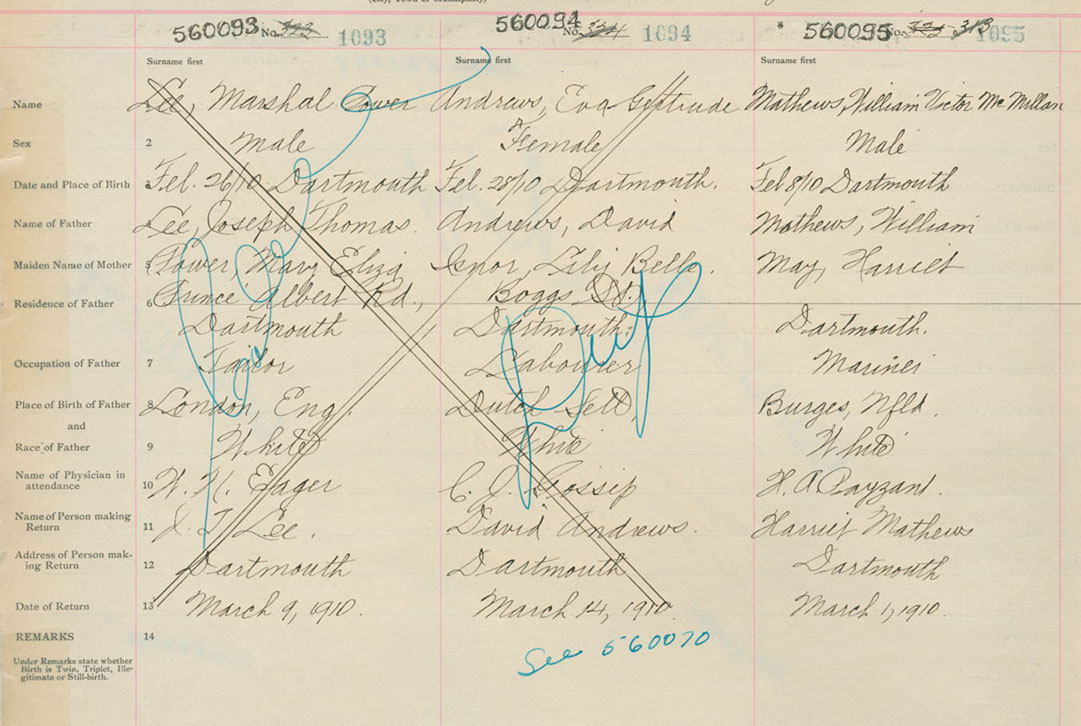 (City, Town or Municipality)
560093 No. 323 1093 560094 No. 324 1094 560095 No. 325 313 1095
Surname first Surname first Surname first
Name Lee, Marshal Power Andrews, Eva Gertrude Mathews, William Victor McMillan
Sex 2 Male Female Male
Date and Place of Birth 3 Feb. 26/10 Dartmouth Feb. 28/10 Dartmouth. Feb 8/10 Dartmouth
Name of Father 4 Lee, Joseph Thomas. Andrews, David Mathews, William
Maiden Name of Mother 5 Power, Mary Eliza Lily Bella. May, Harriet
Residence of Father 6 Prince Albert Rd., Boggs St.
Dartmouth Dartmouth. Dartmouth.
Occupation of Father 7 Tailor Labourer Mariner
Place of Birth of Father 8 London, Eng. Dutch Sett. Burges, Nfld.
and
Race of Father 9 White White White
Name of Physician in
attendance 10 W. H. Eager C. J. Gossip H. A Payzant.
Name of Person making
Return 11 J. T. Lee. David Andrews. Harriet Mathews
Address of Person mak-
ing Return 12 Dartmouth Dartmouth Dartmouth
Date of Return 13 March 9, 1910. March 14, 1910 March 1, 1910.
REMARKS 14
See 560070
Under Remarks state whether
Birth is Twin, Triplet, Ille-
gitimate or Still-birth.